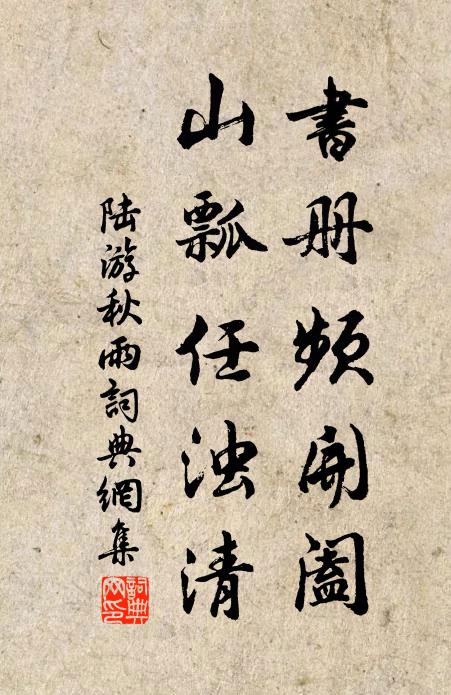 書册頻開闔
山瓢任浊清
陆游秋雨詞典網集
詞典